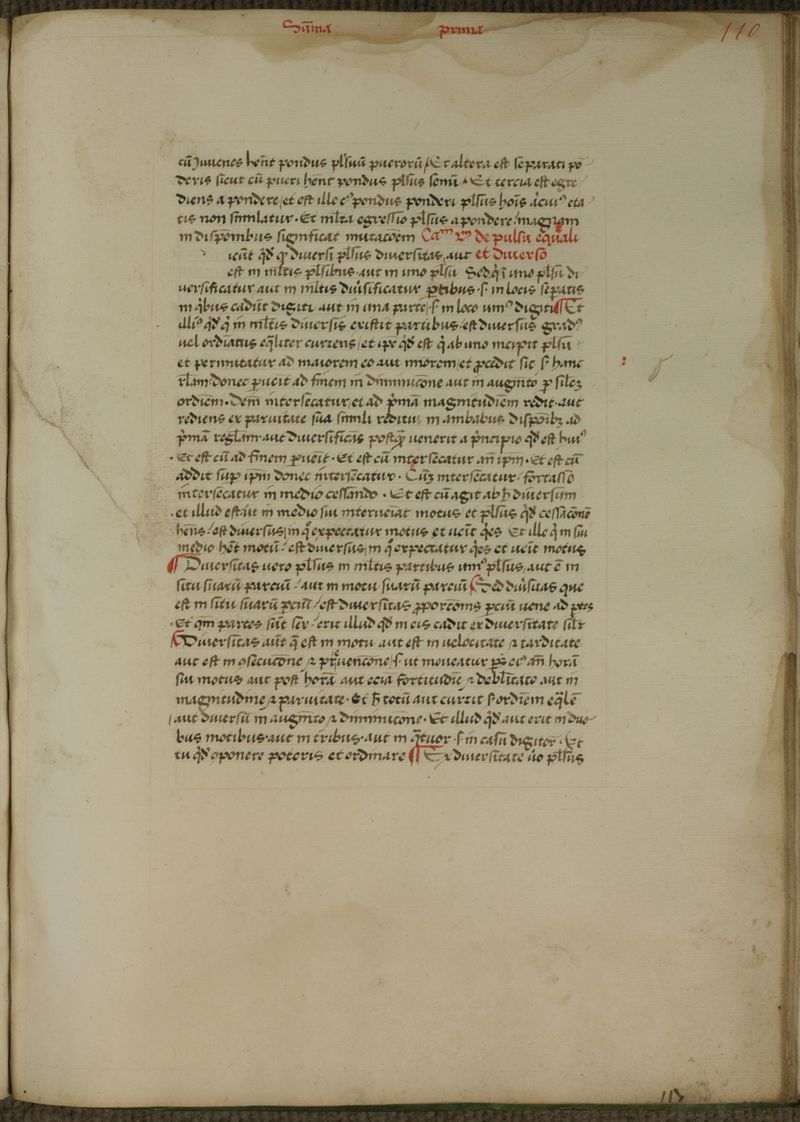 Sūma prima 110
cū Juuenes hēnt pondus pl'suū puerorū / Et altera est separati pō
deris sicut cū pueri hēnt pondus pl'sus senū · Et tercia est egre
diens a pondere / et est ille cꝰ pondus ponderi pl'sus hoīs eta
tis non simlatur · Et mlta egressio pl'sus a pondere / magnam
in dispōnibus significat mutacoēm Caᵐ de pulsu equali
icūt qd̄ diuersi pl'sus diuersitas, aut et diuerso
est in mltis pl'sibus · aut in uno pl'su Sed q̄ ī uno pl'su di
uersificatur aut in mltis diu'sificatur ꝑtibus · s· in locis sepatis
in qͥbus cadūt digiti aut in una parte / s· in loco uniꝰ digiti ¶ Et
illiꝰ qd̄ q̄ in mltis diuersis existit partibus / est diuersus gradꝰ
uel ordiatus eqliter currens / et ipe qd̄ est q̄ ab uno incipit pl'su
et permutatur ad maiorem eo aut miorem / et ꝓcedit sic s· hanc
rl'am donec ꝑueīt ad finem in diminucōne aut in augmto ꝑ silez
ordiem · Dein intersecatur, et ad pͥmā magnitudiem redit · aut
rediens ex paruitate sua simili reditu in ambabus dispōibꝫ ad
pͥmā regl'am · aut diuersificās postq̄ uenerit a pͥncipio qd̄ est huiꝰ
· Et est cū ad finem ꝑueīt · Et est cū intersecatur an̄ ipm̄ · Et est cū
addit sup ipm̄ donec intersecatur · Cūꝫ intersecatur / fortasse
intersecatur in medio cessando · Et est cū agit ab h̄ diuersum
et illud est / ut in medio sui interueīat motus et pl'sus qd̄ cessacōnē
hēns / est diuersus / in q̄ expectatur motus et ueīt q̄es Et ille q̄ in sui
medio hēt motū / est diuersus / in q̄ expectatur q̄es et ueīt motus
¶ Diuersitas uero pl'sus in mltis partibus uniꝰ pl'sus, aut ē in
situ suarū parciū / aut in motu suarū parciū ¶ Sed diu'sitas que
est in situ suarū ꝑciū / est diuersitas ꝓporcōnis ꝑciū uene ad ꝑtes
· Et qm̄ partes sūt sex / erit illud qd̄ in eis cadit ex diuersitate silr
¶ Diuersitas aūt q̄ est in motu aut est in uelocitate ⁊ tarditate
aut est in ⁊ s· ut moueatur an̄ horā
sui motus aut post horā aut ecia fortitudīe ⁊ deblitate aut in
magnitudine ⁊ paruitate · Et h̄ totū aut currit s· ordiem eqlē
/ aut diuersū in augmto ⁊ diminucōne · Et illud qd̄ aut erit in duo
bus motibus · aut in tribus · aut in q̄tuor · s· in casū digitor · Et
tu qd̄ oponere poteris et ordinare ¶ Ex diuersitate uo pl'sus